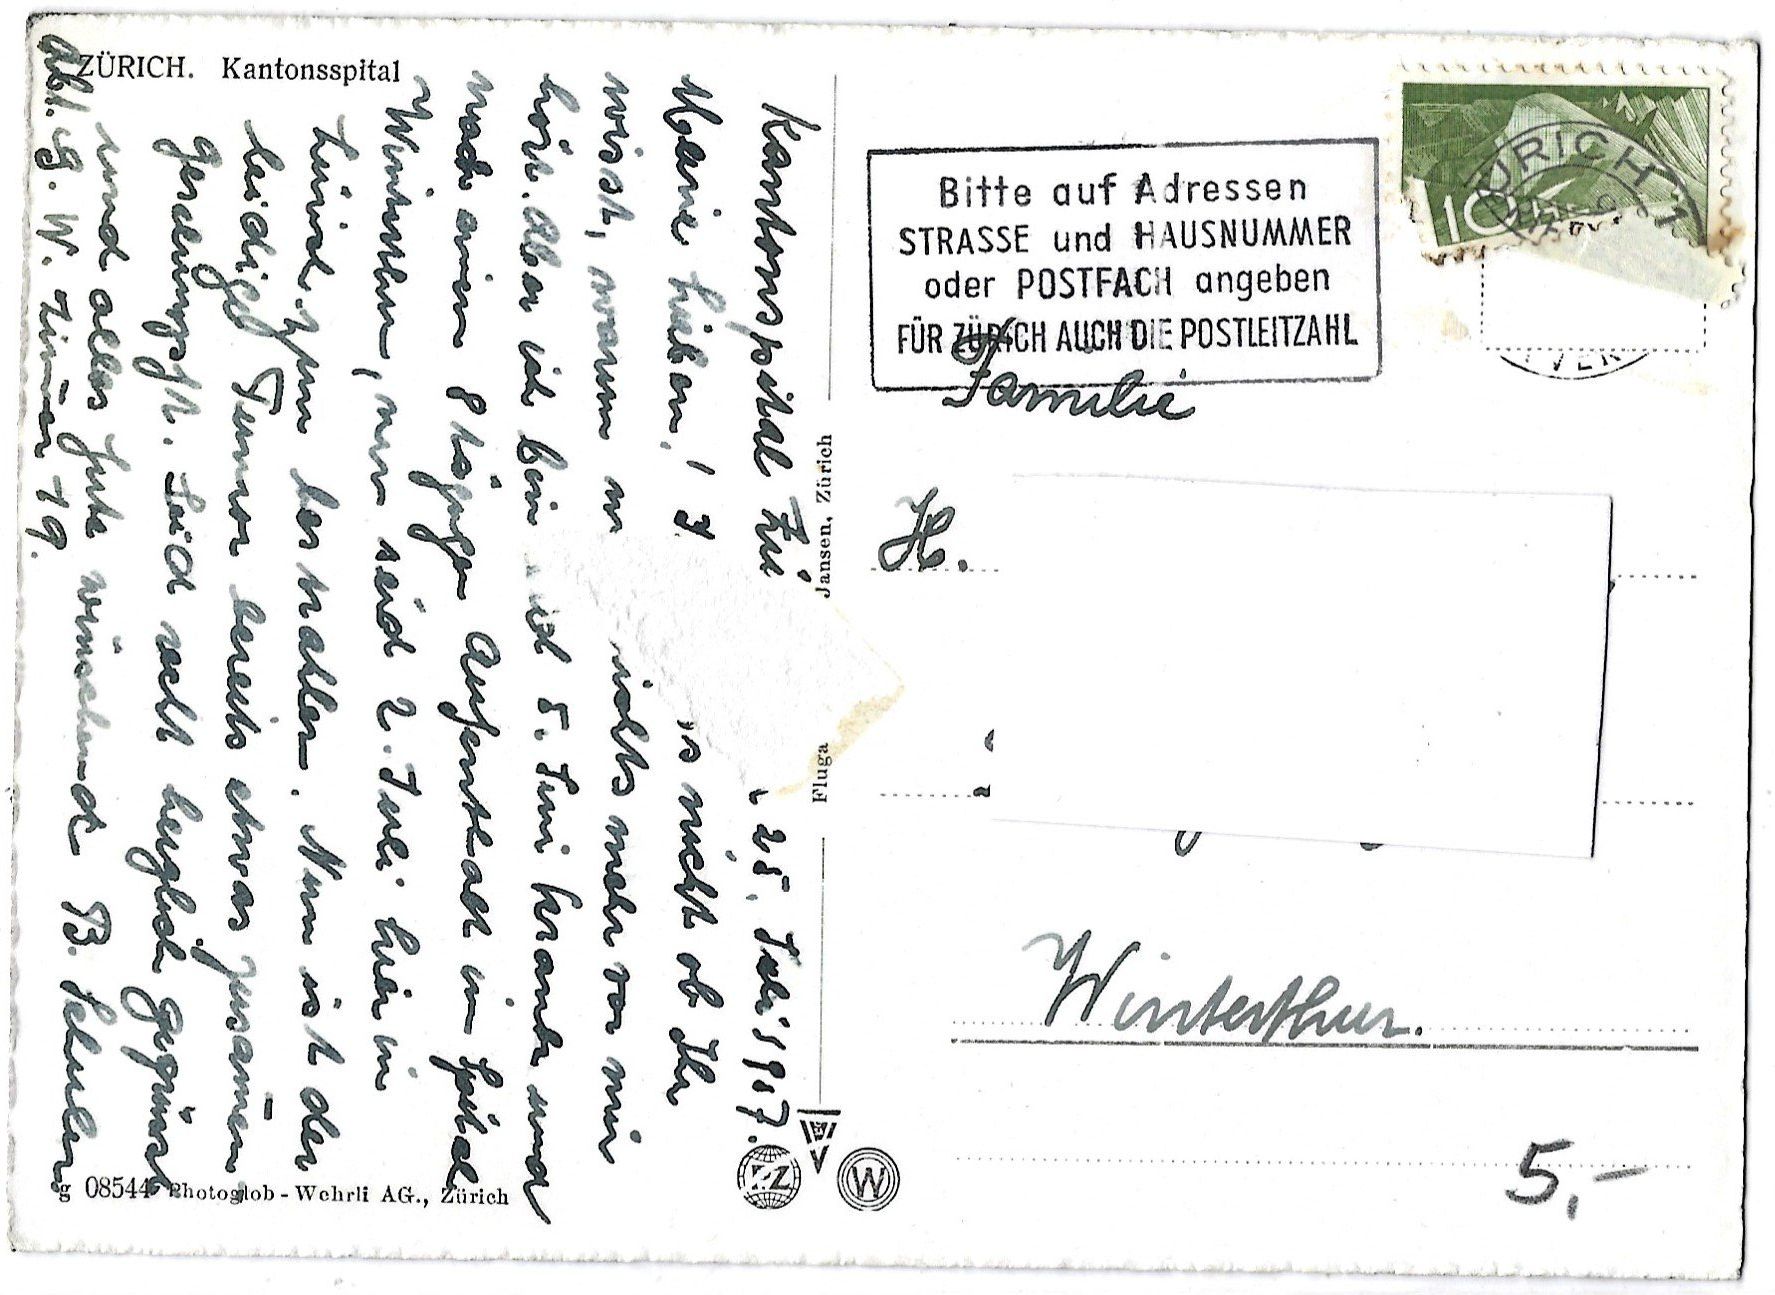 ZÜRICH. Kantonsspital
Kantonsspital Zü
25. Juli 1957.
Meine Lieben! I
s nicht ob Ihr
wisst, warum
nichts mehr von mir
hört. Aber ich bin seit 5. Juni krank und
nach einem 8 tägigen Aufenthalt im Spital
Winterthur, nun seid 2. Juli hier in
Zürich zum bestrahlen. Nun ist der
leidige Tumor bereits etwas zusamen
geschrumpft. Seid recht herzlich gegrüsst
und alles Gute wünschend B.
Abl. G. W. Zimer 19.
Jansen, Zürich
Fluga
g 08544 Photoglob-Wehrli AG., Zürich
PZ
W
Bitte auf Adressen
STRASSE und HAUSNUMMER
oder POSTFACH angeben
FÜR ZÜRICH AUCH DIE POSTLEITZAHL
10
ZÜRICH 1
Familie
H.
Winterthur.
5,-